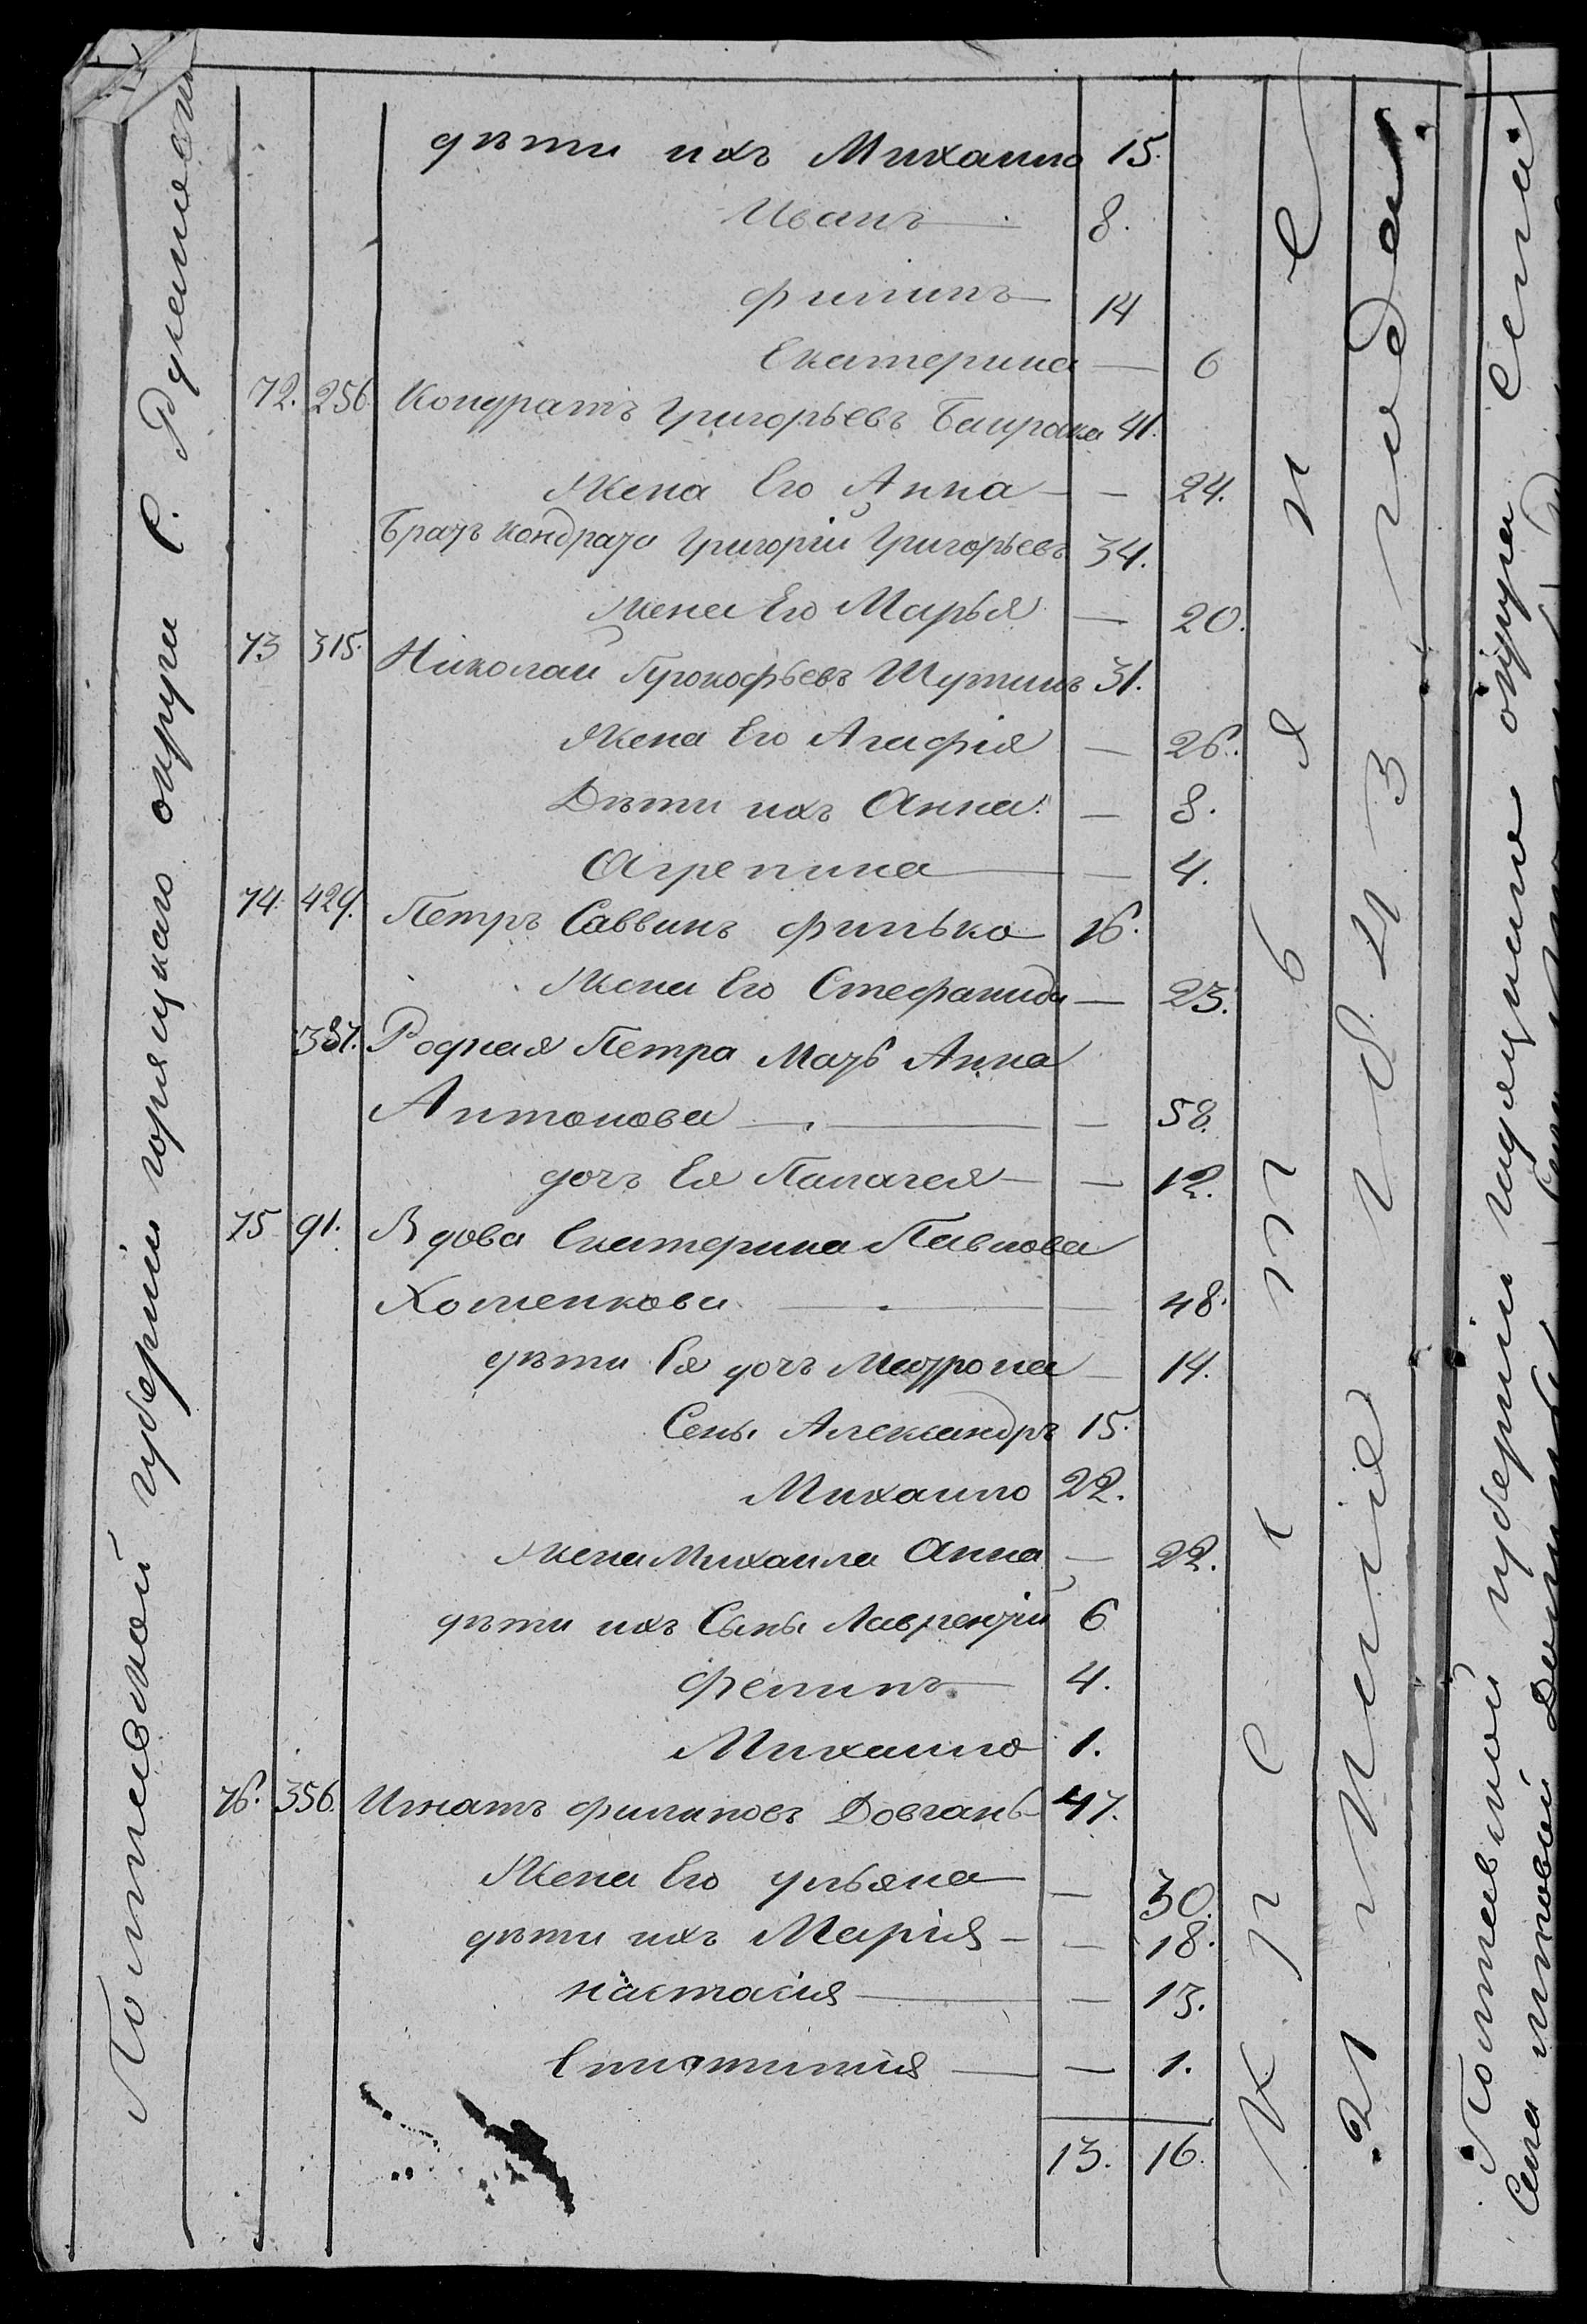 Полтавской губернiи горяцкаго округа С.
дѣти ихъ Михаило 15.
Иванъ 8.
Филипъ 14
Екатерина — 6
72. 256. Кондратъ Григорьевъ Баирака 41.
Жена Его Анна — 24.
Братъ Кондрата Григорiи Григорьевъ 34.
Жена Его Марья — 20.
73 315. Николаи Прокофьевъ Шутилъ 31.
Жена Его Агафiя — 26.
Дѣти ихъ Анна — 8.
Агрепина — 4.
74 429. Петръ Саввинъ Филько 16.
Жена Его Стефанида — 23.
387. Родная Петра Мать Анна
Антонова — 58.
дочъ Ея Палагея — 12.
75 91. Вдова Екатерина Павлова
Хоменкова — 48.
дѣти Ея дочъ Матрона — 14.
Сены Александръ 15.
Михаило 22.
Жена Михаила Анна — 22.
дѣти ихъ Сыны Лаврентiй 6
Фелипъ 4.
Михаило 1.
76. 356. Игнатъ Филиповъ Довгань 47.
Жена Его Ульяна — 30.
дѣти ихъ Марiя — 18.
Настасiя — 13.
— 1.
13. 16.
К р е с т ь я н е
1843 года
Полтавской губернiи округа Села